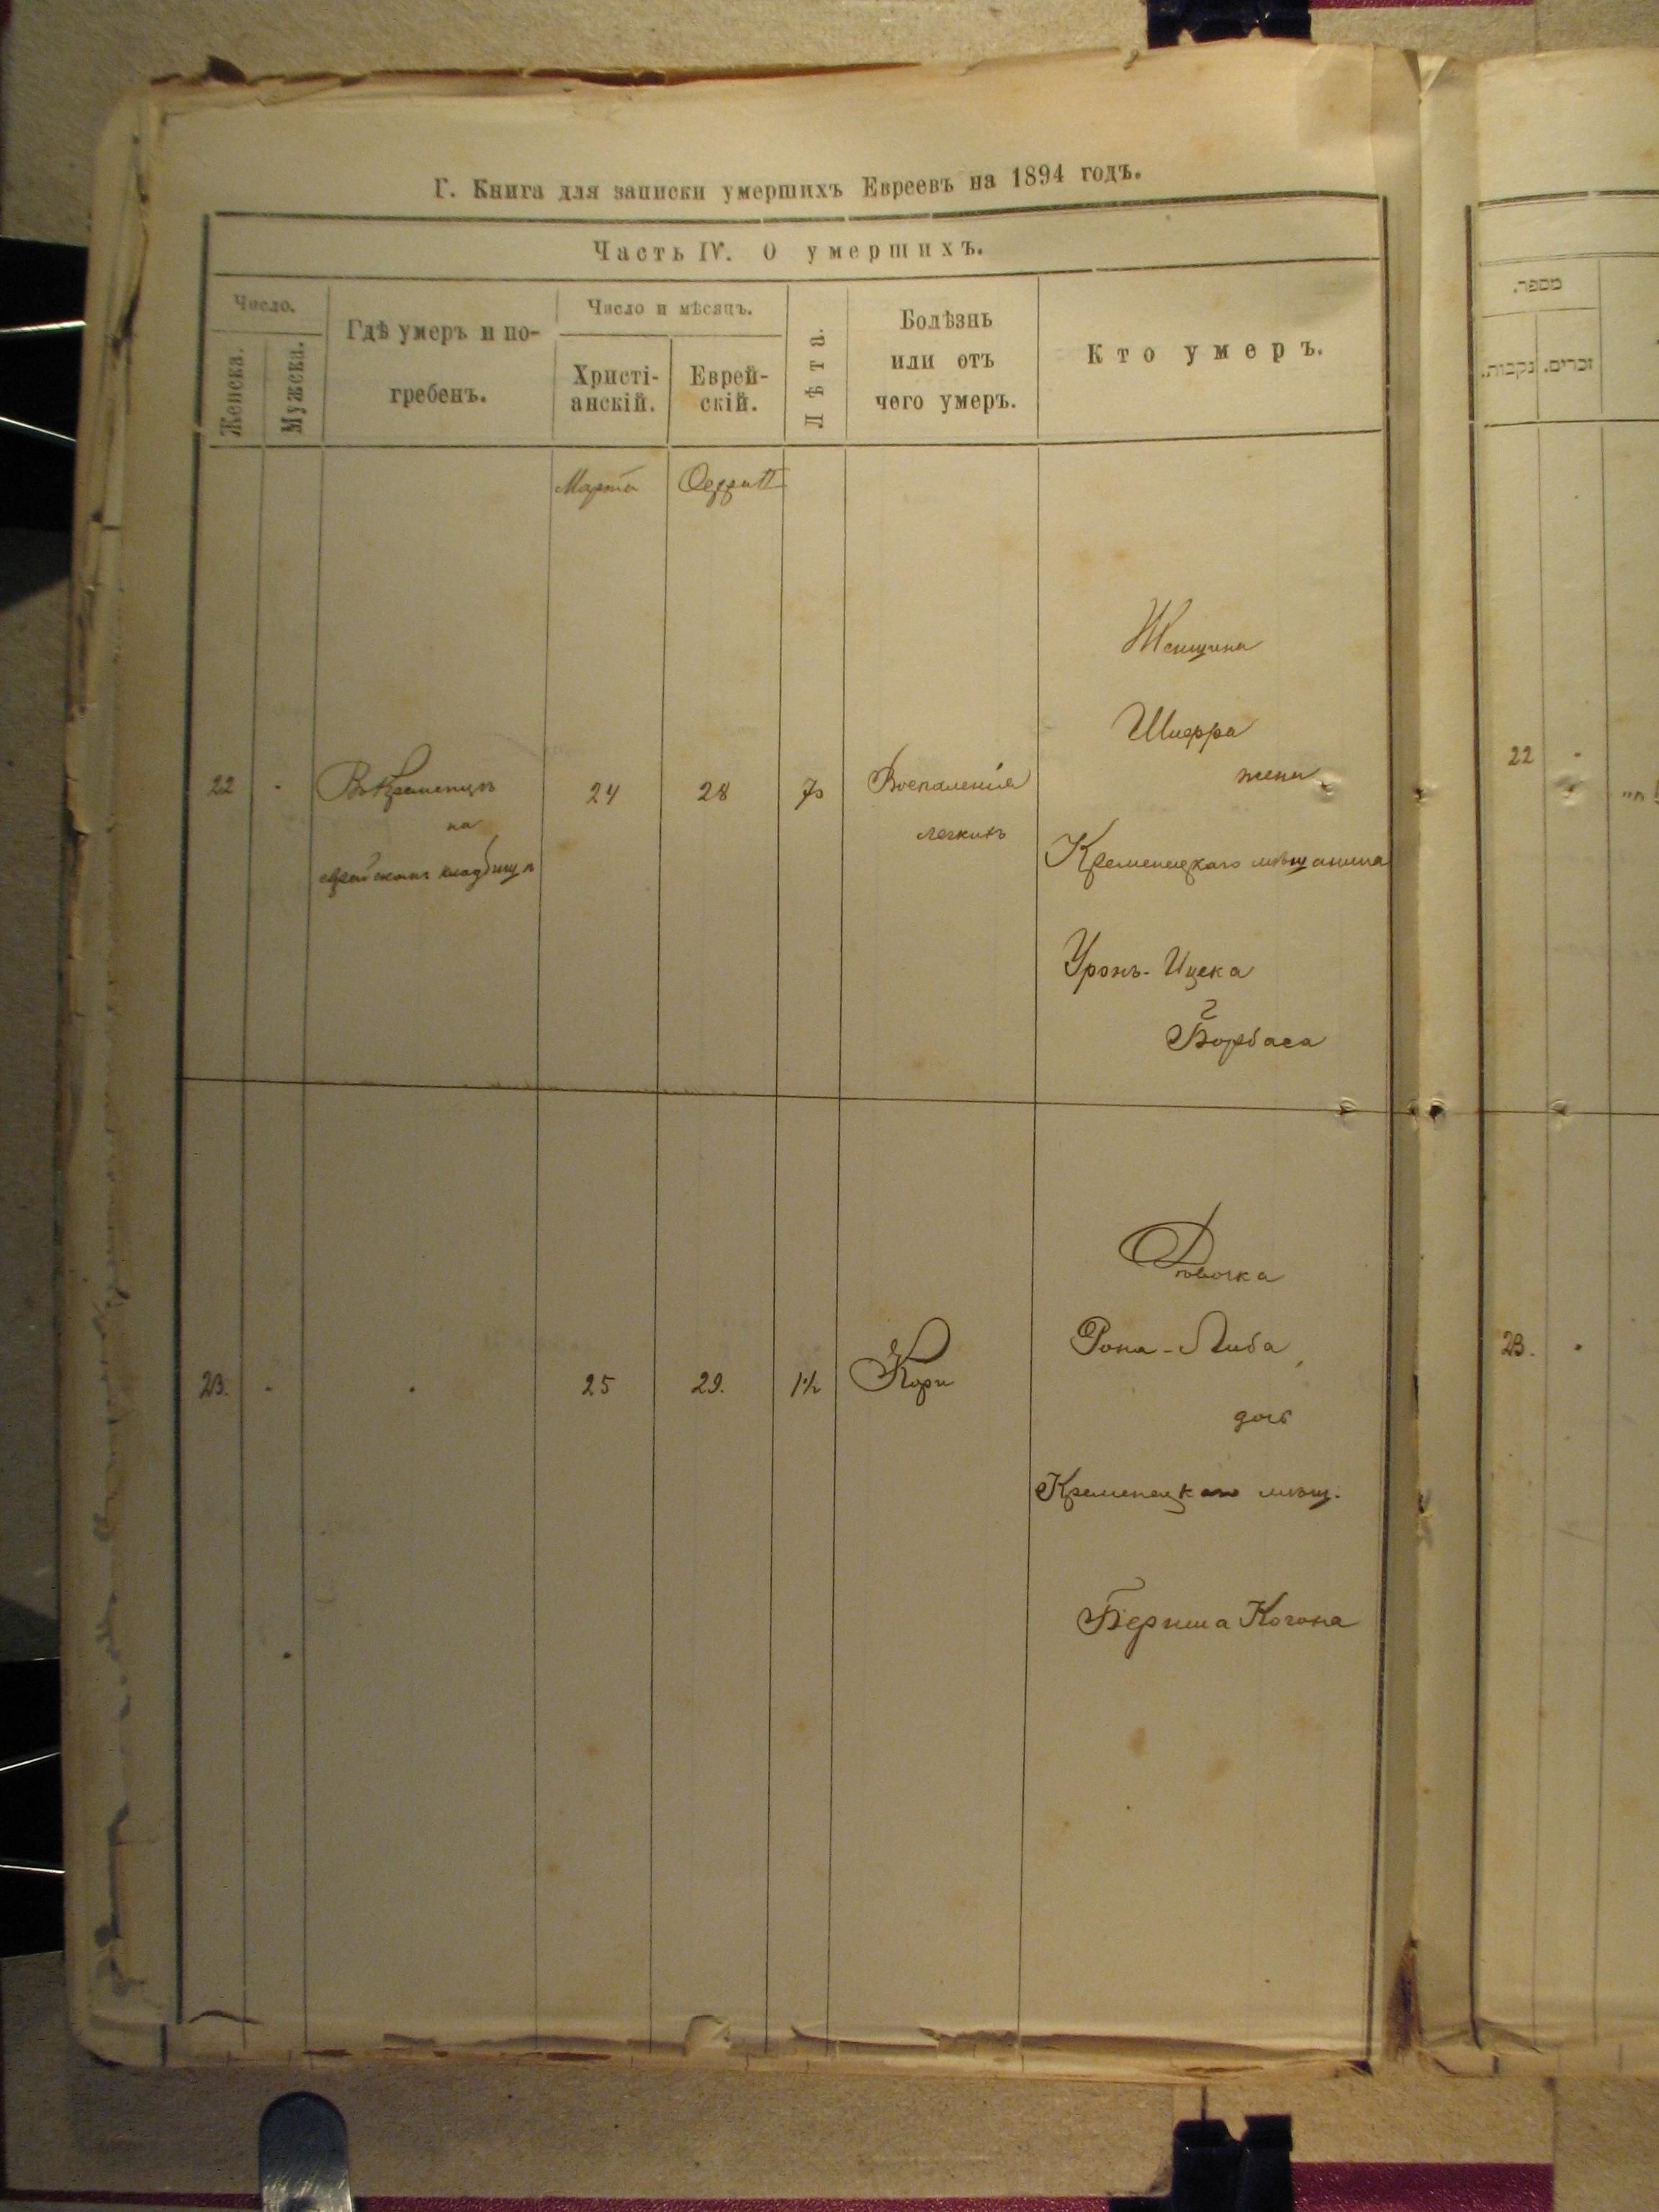 Г. Книга для записки умершихъ Евреевъ на 1894 годъ.
Часть IV. О умершихъ.
Число.
Женска.
Мужска.
Гдѣ умеръ и по-
гребенъ.
Число и мѣсяцъ.
Христі-
анскій.
Еврей-
скій.
Лѣта.
Болѣзнь
или отъ
чего умеръ.
Кто умеръ.
Марта
22
Въ Кременцѣ
на
еврейскомъ кладбищѣ
24
28
70
Воспаленія
легкихъ
Женщина
жена
Кременецкаго мѣщанина
Ицека
Борбаса
23.
25
29.
1½
Кори
Дѣвочка
Рона-Либа
дочь
Кременецкаго мѣщ.
Бериша Когона
מספר.
נקבות.
זכרים.
22
23.